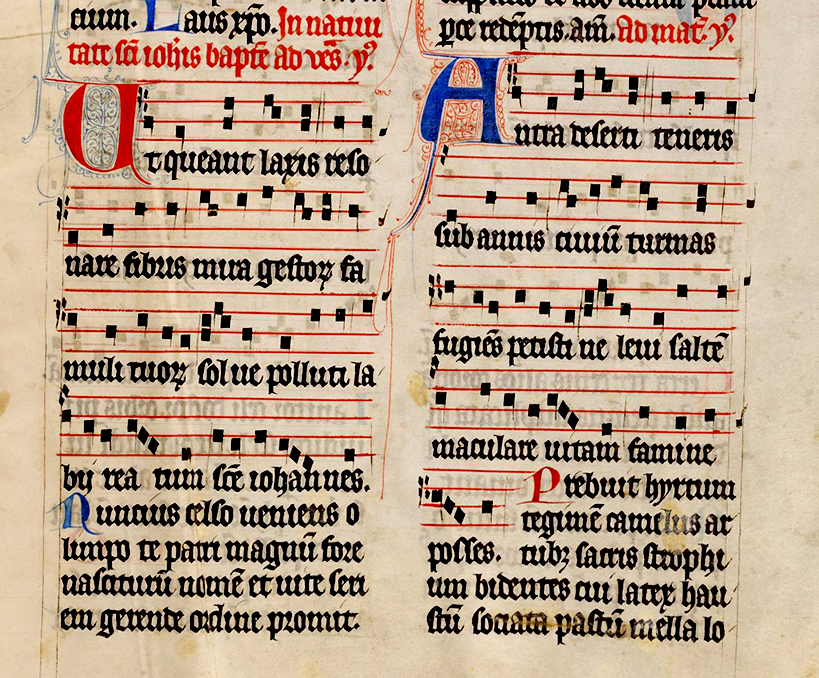 cium. Laus xp̄o. In natiui
tate sc̄i ioh̄is bapt̄e ad vēs. y᷒.
Ut queant laxis reso
nare fibris mira gestoꝝ fa
muli tuoꝝ solue polluti la
bij rea tum sc̄e iohannes.
Nuncius celso ueniens o
limpo te patri magnū fore
nasciturū nomē et uite seri
em gerende ordine promit.
ꝑce redēptis. am̄. Ad mat̄. y᷒.
Antra deserti teneris
sub annis ciuiū turmas
fugiēs petisti ne leui saltē
maculare uitam famine
posses.
Prebuit hyrtum
tegimē camelus ar
tubꝫ sacris strophi
um bidentes cui latex hau
stū sociata pastū mella lo